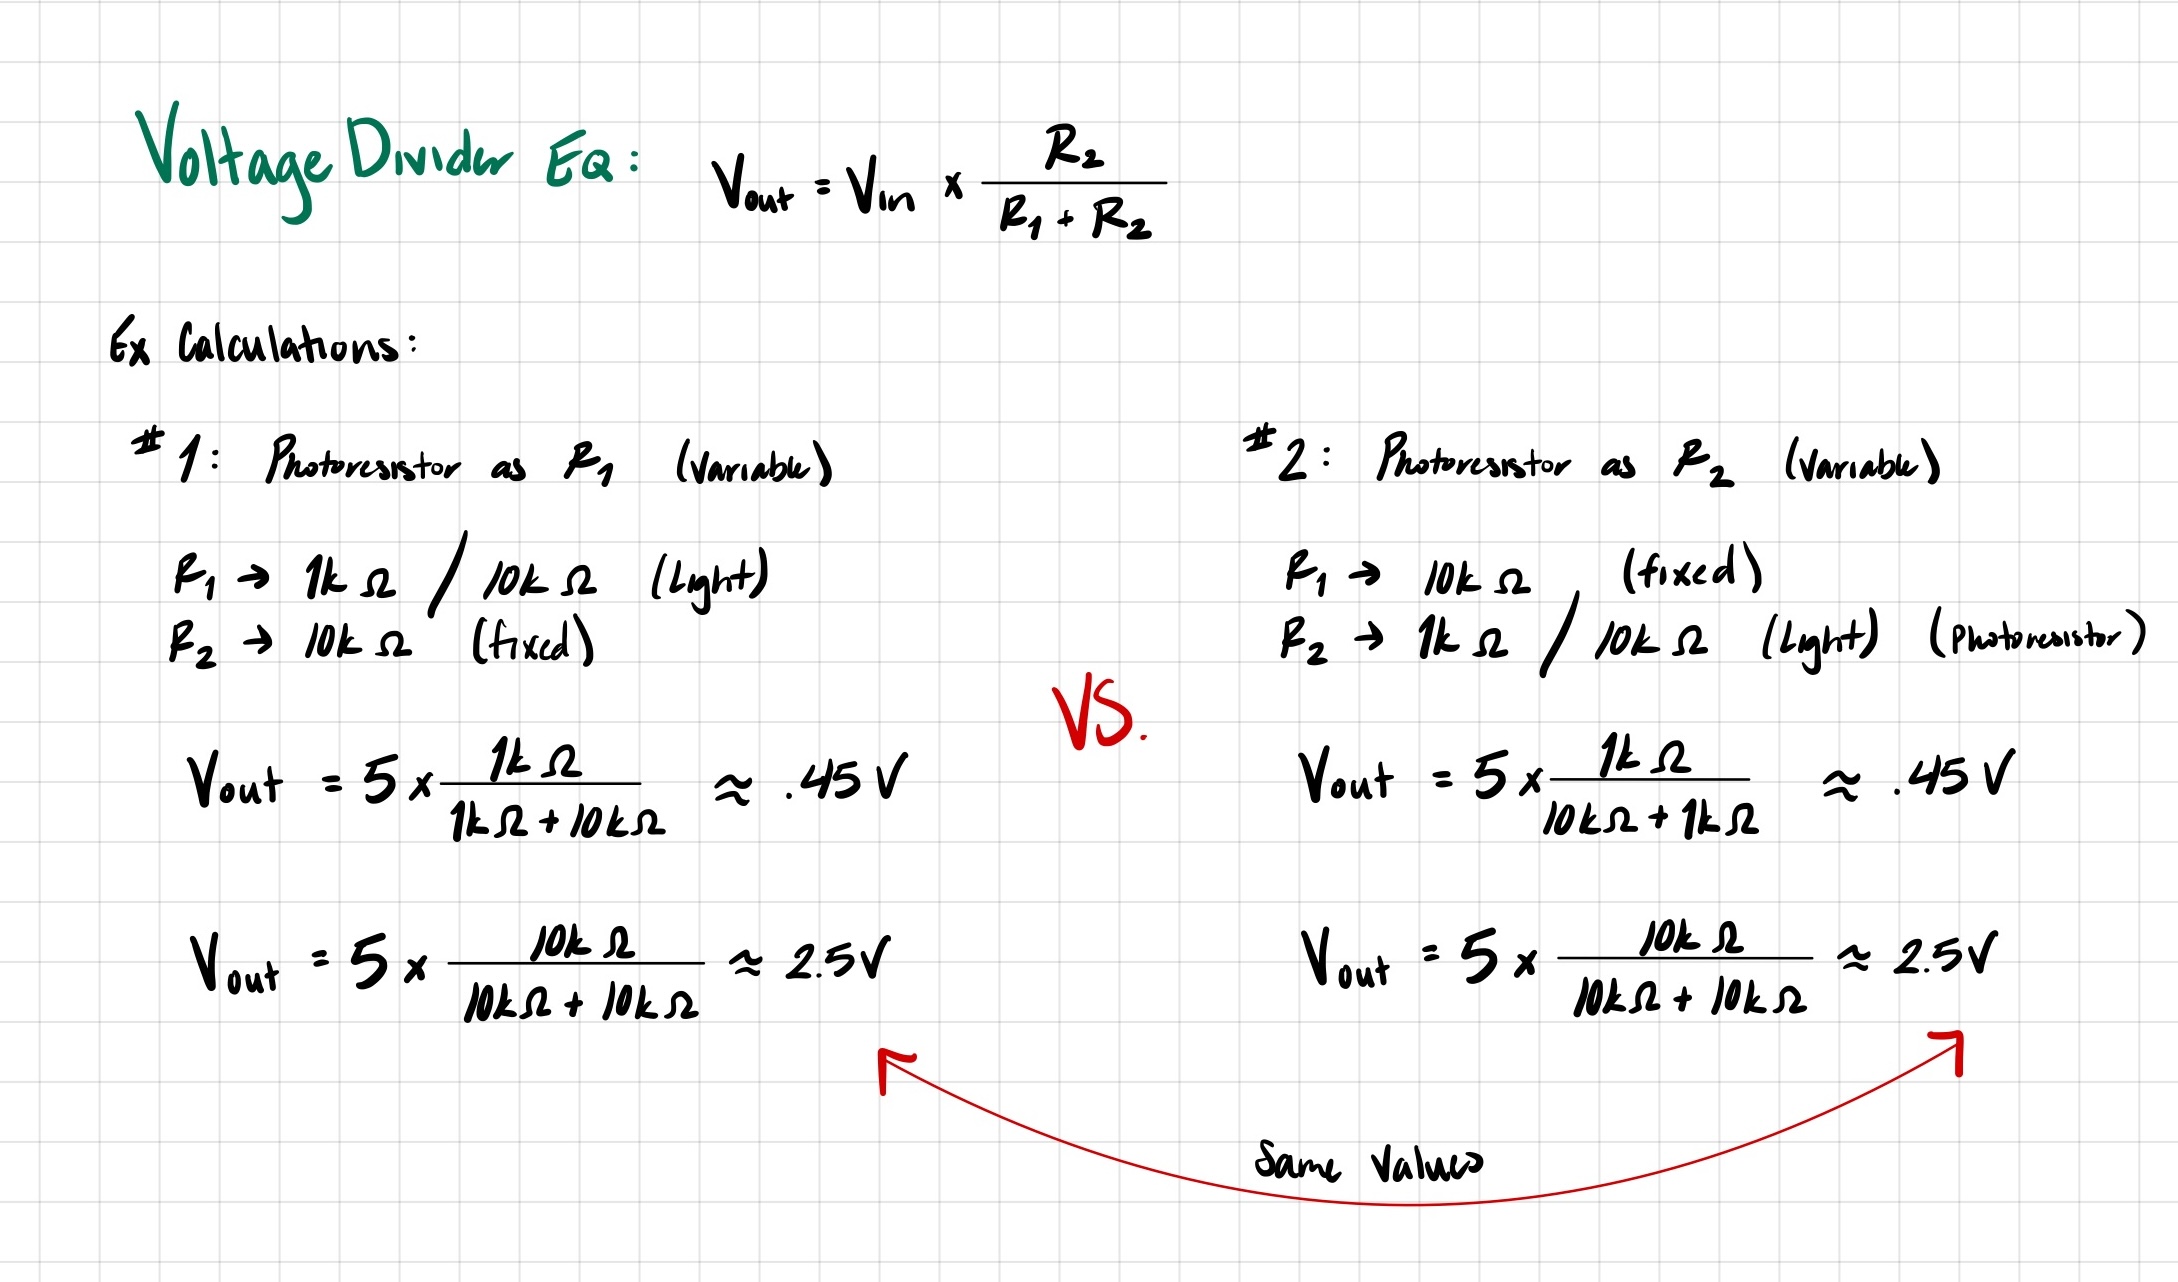 Voltage Divider EQ: Vout = Vin x R2 / (R1 + R2)
Ex Calculations:
#1: Photoresistor as R1 (Variable)
R1 → 1k Ω / 10k Ω (Light)
R2 → 10k Ω (fixed)
Vout = 5 x 1k Ω / (1k Ω + 10k Ω) ≈ .45 V
Vout = 5 x 10k Ω / (10k Ω + 10k Ω) ≈ 2.5 V
VS.
#2: Photoresistor as R2 (Variable)
R1 → 10k Ω (fixed)
R2 → 1k Ω / 10k Ω (Light) (Photoresistor)
Vout = 5 x 1k Ω / (10k Ω + 1k Ω) ≈ .45 V
Vout = 5 x 10k Ω / (10k Ω + 10k Ω) ≈ 2.5 V
Same Values